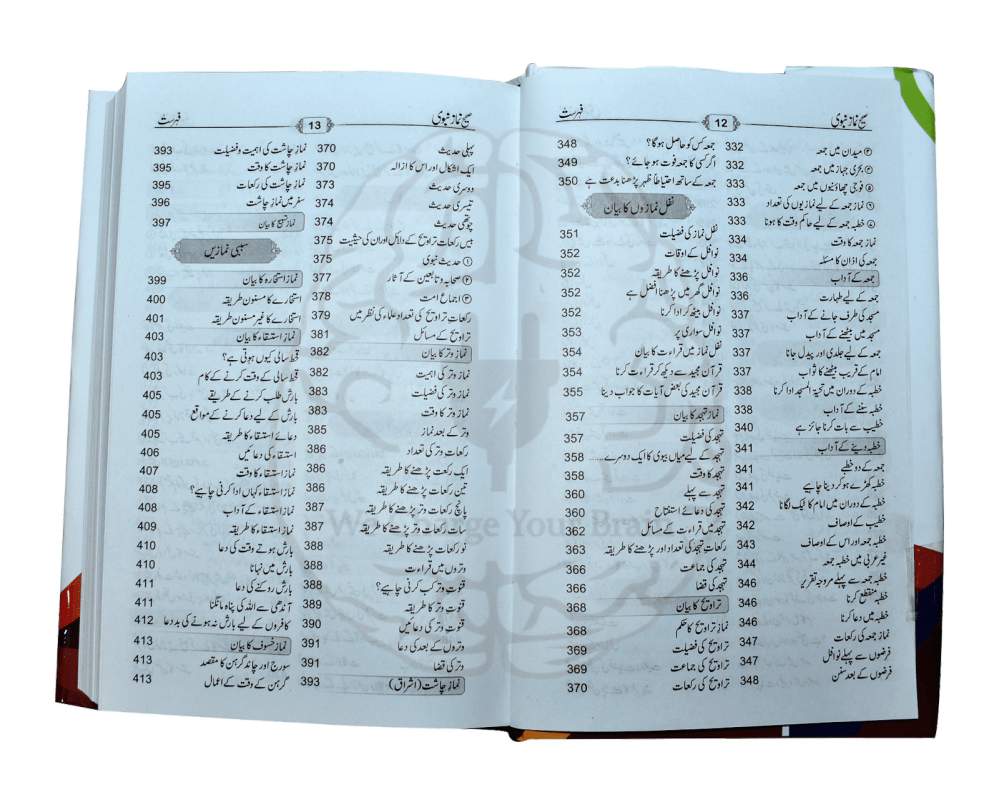 صحیح نماز نبوی 12 فہرست
④ میدان میں جمعہ 332
⑤ بحری جہاز میں جمعہ 332
فوجی چھاؤنیوں میں جمعہ 333
نماز جمعہ کے لیے نمازیوں کی تعداد 333
خطبہ جمعہ کے لیے حاکم وقت کا ہونا 333
نماز جمعہ کا وقت 334
جمعہ کی اذان کا مسئلہ 334
جمعہ کے آداب 336
جمعہ کے لیے طہارت 336
مسجد کی طرف جانے کے آداب 337
مسجد میں بیٹھنے کے آداب 337
جمعہ کے لیے جلدی اور پیدل جانا 337
امام کے قریب بیٹھنے کا ثواب 337
خطبہ کے دوران میں تحیۃ المسجد ادا کرنا 338
خطبہ سننے کے آداب 338
خطیب سے بات کرنا جائز ہے 340
خطبہ دینے کے آداب 341
جمعہ کے دو خطبے 341
خطبہ کھڑے ہو کر دینا چاہیے 341
خطبہ کے دوران میں امام کا ٹیک لگانا 342
خطیب کے اوصاف 342
خطبہ جمعہ اور اس کے اوصاف 343
غیر عربی میں خطبہ جمعہ 344
خطبہ جمعہ سے پہلے مروجہ تقریر 346
خطبہ منقطع کرنا 346
خطبہ میں دعا کرنا 346
نماز جمعہ کی رکعات 347
فرضوں سے پہلے نوافل 347
فرضوں کے بعد سنن 348
جمعہ کس کو حاصل ہوگا؟ 348
اگر کسی کا جمعہ فوت ہو جائے؟ 349
جمعہ کے ساتھ احتیاطاً ظہر پڑھنا بدعت ہے 350
نفل نمازوں کا بیان
نفل نماز کی فضیلت 351
نوافل کے اوقات 352
نوافل پڑھنے کا طریقہ 352
نوافل گھر میں پڑھنا افضل ہے 352
نوافل بیٹھ کر ادا کرنا 352
نوافل سواری پر 353
نفل نماز میں قراءت کا بیان 354
قرآن مجید سے دیکھ کر قراءت کرنا 354
قرآن مجید کی بعض آیات کا جواب دینا 355
نماز تہجد کا بیان 357
تہجد کی فضیلت 357
تہجد کے لیے میاں بیوی کا ایک دوسرے...... 358
تہجد کا وقت 358
تہجد سے پہلے 360
تہجد کی دعائے استفتاح 360
تہجد میں قراءت کے مسائل 362
رکعات تہجد کی تعداد اور پڑھنے کا طریقہ 363
تہجد کی جماعت 366
تہجد کی قضا 366
تراویح کا بیان 368
نماز تراویح کا حکم 368
تراویح کی فضیلت 369
تراویح کی جماعت 369
تراویح کی رکعات 370
صحیح نماز نبوی 13 فہرست
پہلی حدیث 370
ایک اشکال اور اس کا ازالہ 370
دوسری حدیث 373
تیسری حدیث 374
چوتھی حدیث 374
بیس رکعات تراویح کے دلائل اور ان کی حیثیت 375
① حدیث نبوی 375
② صحابہ و تابعین کے آثار 377
③ اجماع امت 378
رکعات تراویح کی تعداد علماء کی نظر میں 379
تراویح کے مسائل 381
نماز وتر کا بیان 382
نماز وتر کی اہمیت 382
نماز وتر کی فضیلت 383
نماز وتر کا وقت 383
وتر کے بعد نماز 385
رکعات وتر کی تعداد 386
ایک رکعت پڑھنے کا طریقہ 386
تین رکعات پڑھنے کا طریقہ 386
پانچ رکعات وتر پڑھنے کا طریقہ 387
سات رکعات وتر پڑھنے کا طریقہ 387
نو رکعات پڑھنے کا طریقہ 388
وتروں میں قراءت 388
قنوت وتر کب کرنی چاہیے؟ 388
قنوت وتر کا طریقہ 389
قنوت وتر کی دعائیں 390
وتروں کے بعد کی دعا 391
وتر کی قضا 391
نماز چاشت (اشراق) 393
نماز چاشت کی اہمیت و فضیلت 393
نماز چاشت کا وقت 395
نماز چاشت کی رکعات 395
سفر میں نماز چاشت 396
نماز تسبیح کا بیان 397
سببی نمازیں
نماز استخارہ کا بیان 399
استخارے کا مسنون طریقہ 400
استخارے کا غیر مسنون طریقہ 401
نماز استسقاء کا بیان 403
قحط سالی کیوں ہوتی ہے؟ 403
قحط سالی کے وقت کرنے کے کام 403
بارش طلب کرنے کے طریقے 405
بارش کے لیے دعا کرنے کے مواقع 405
دعائے استسقاء کا طریقہ 405
استسقاء کی دعائیں 406
نماز استسقاء کا وقت 407
نماز استسقاء کہاں ادا کرنی چاہیے؟ 408
نماز استسقاء کے آداب 408
نماز استسقاء کا طریقہ 409
بارش ہوتے وقت کی دعا 410
بارش میں نہانا 410
بارش روکنے کی دعا 411
آندھی سے اللہ کی پناہ مانگنا 411
کافروں کے لیے بارش نہ ہونے کی بددعا 412
نماز خسوف کا بیان 413
سورج اور چاند گرہن کا مقصد 413
گرہن کے وقت کے اعمال 413
Your Brain